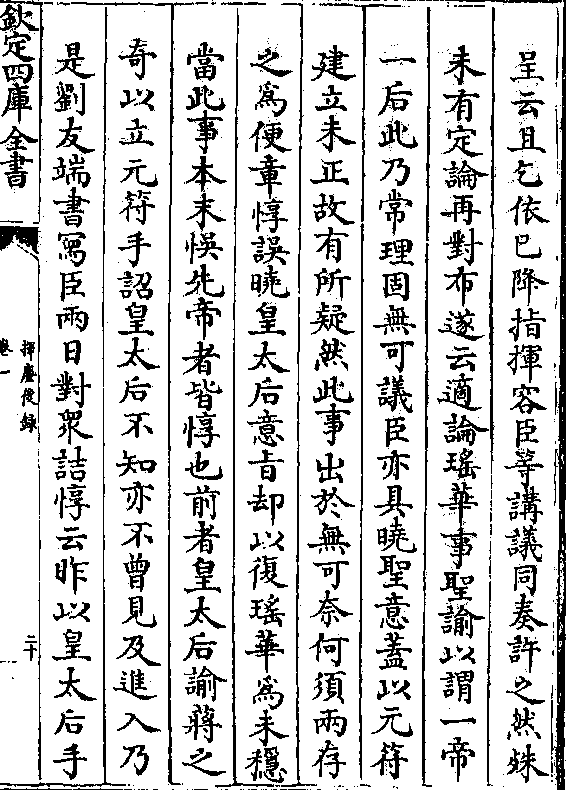 呈云且乞依已降指揮容臣等講議同奏許之然殊
未有定論再對布遂云適論瑤華事聖諭以謂一帝
一后此乃常理固無可議臣亦具曉聖意蓋以元符
建立未正故有所疑然此事出於無可奈何須兩存
之為便章惇誤曉皇太后意㫖却以復瑤華為未穩
當此事本末悞先帝者皆惇也前者皇太后諭蔣之
奇以立元符手詔皇太后不知亦不曾見及進入乃
是劉友端書寫臣兩日對衆詰惇云昨以皇太后手
欽定四庫全書
揮麈後録
卷一
二十